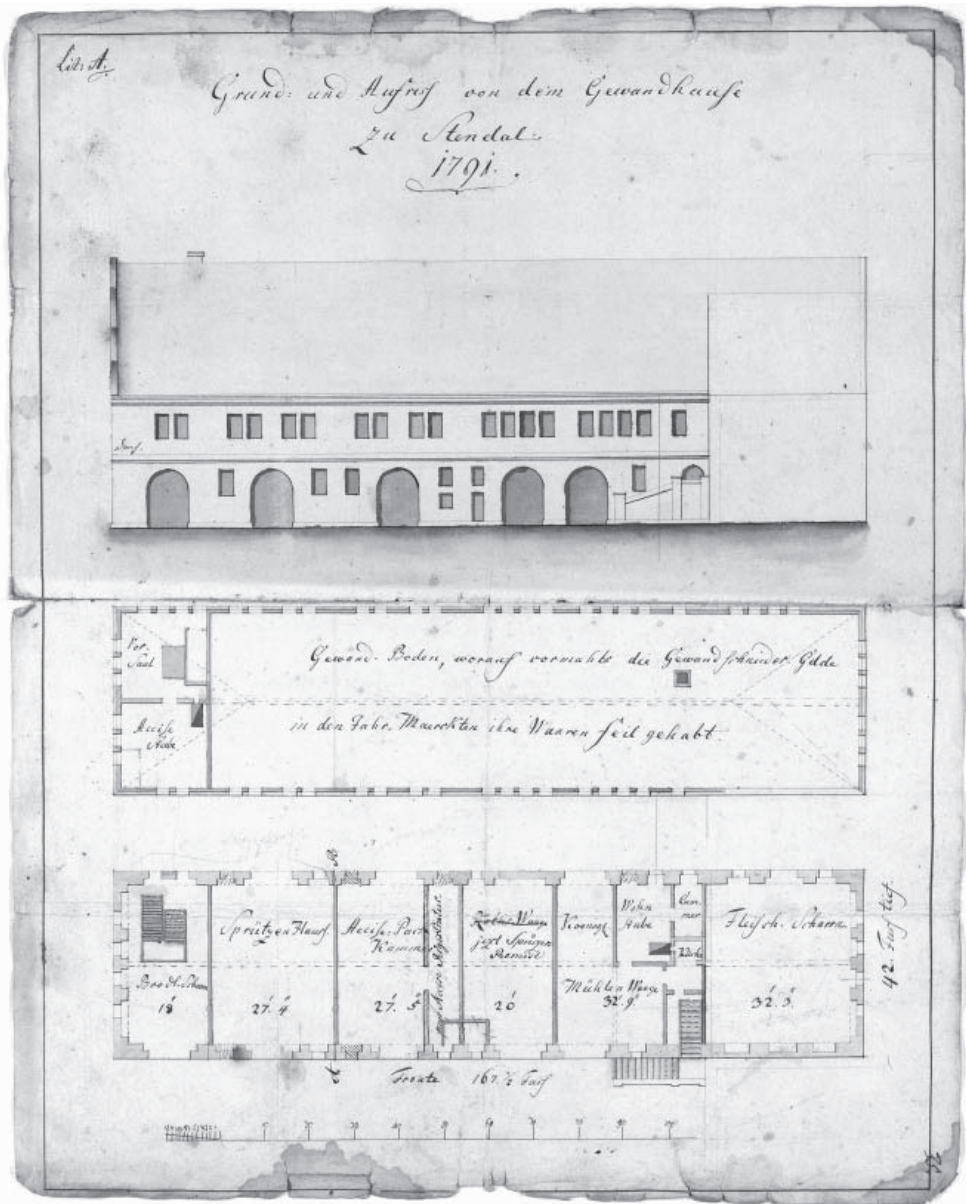 Litr. A.
Grund- und Aufriss von dem Gewandhause
zu Stendal.
1791.
Vor-
Saal
Accise
Stube
Gewand-Boden, worauf vormahls die Gewandschneider Gilde
in den Jahr-Maerckten ihre Waaren feil gehabt.
B
Brodt-Scharn
18'
Sprützen Hauss
27' 4"
Accise-Pack
Kammer
27' 5"
Waage
jezt
Remise
20'
Wohn
Stube
Cam-
mer
Küche
Mühlen Waage
32' 9"
Fleisch-Scharrn
32' 3"
42. Fuss tief.
A
Fronte 167 1/2 Fuss